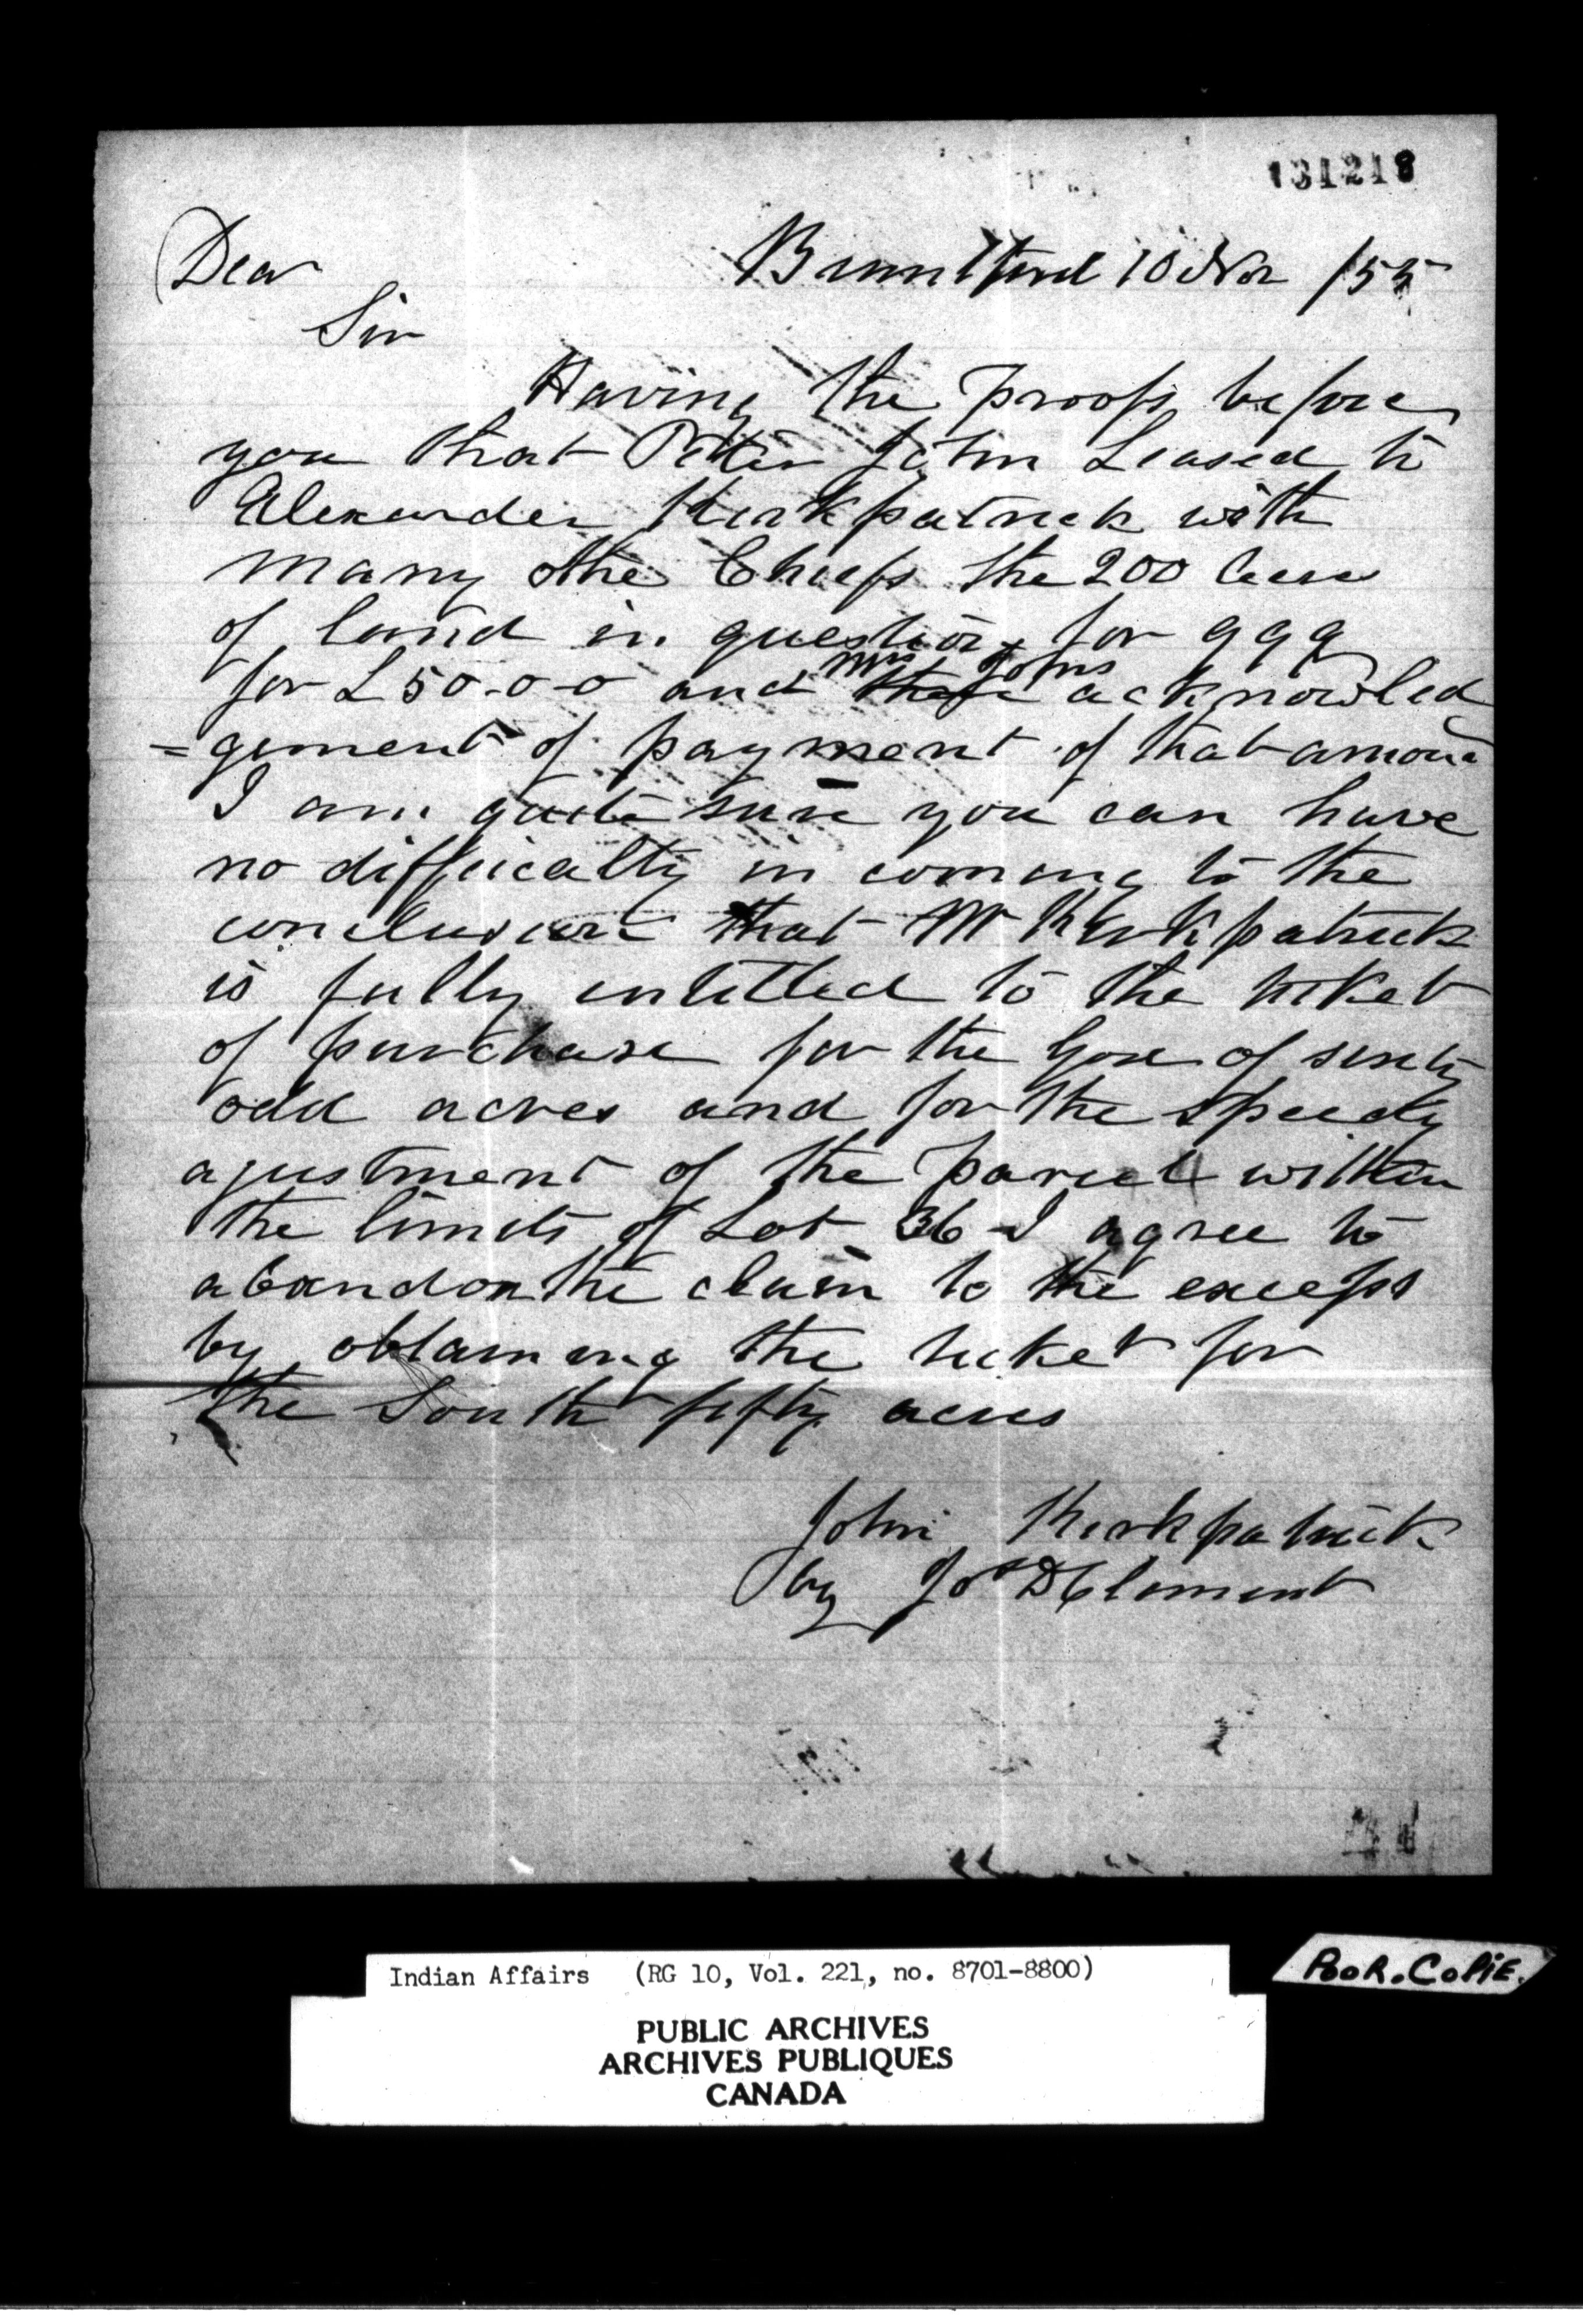 131218
Dear Brantford 10 Nov /55
Sir
Having the proofs before
you that Peter John Leased to
Alexander Kirkpatrick with
many othe Chiefs the 200 Acres
of land in question for 999
for £50-0-0 and Mrs Johns acknowled
=gement of payment of that amount
I am quite sure you can have
no difficulty in coming to the
conclusion that Mr Kirkpatrick
is fully intitled to the ticket
of purchase for the Gore of sixty
odd acres and for the speedy
ajustment of the parcel within
the limits of Lot 36 I agree to
abandon the claim to the excess
by obtaining the ticket for
the South fifty acres
John Kirkpatrick
by Jos D Clement
Indian Affairs (RG 10, Vol. 221, no. 8701-8800)
PUBLIC ARCHIVES
ARCHIVES PUBLIQUES
CANADA
POOR.COPIE.